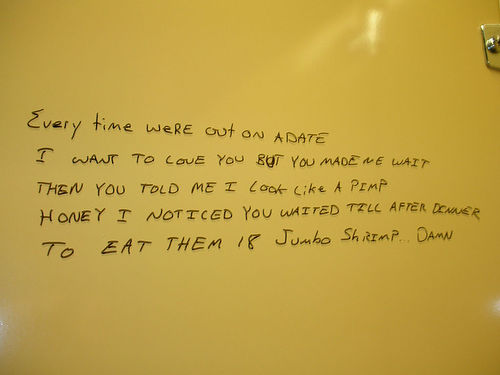 Every time weRE out ON A DATE
I WANT TO LOVE YOU BUT YOU MADE ME WAIT
THEN YOU TOLD ME I Look Like A PIMP
HONEY I NOTICED YOU WAITED TILL AFTER DINNER
To EAT THEM 18 Jumbo ShRIMP... DAMN